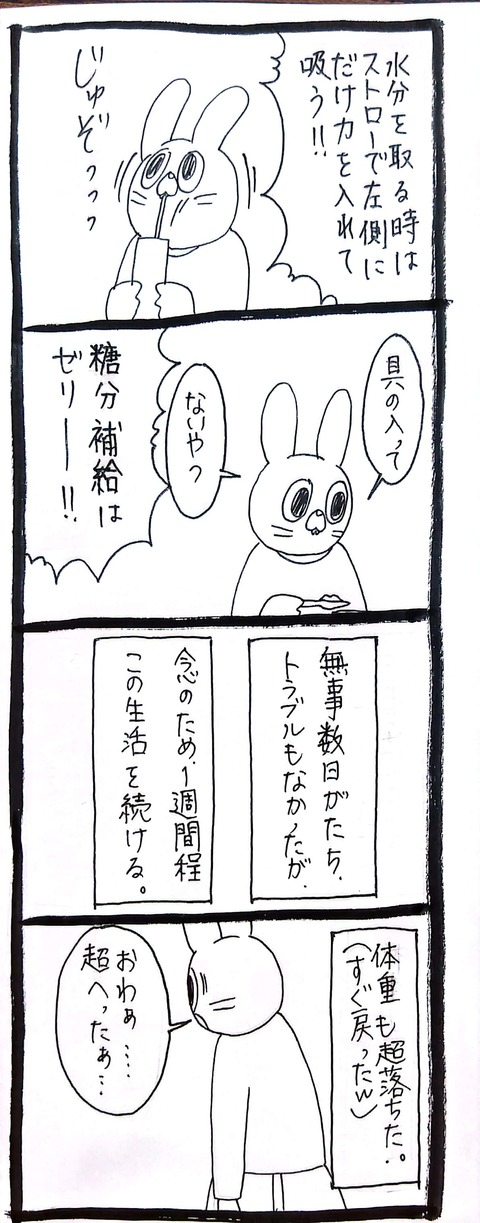 水分を取る時は
ストローで左側に
だけ力を入れて
吸う!!
じゅぞっっっ
具の入って
ないやつ
糖分補給は
ゼリー!!
無事数日がたち、
トラブルもなかったが、
念のため、1週間程
この生活を続ける。
体重も超落ちた。
(すぐ戻ったw)
おわぁ‥‥
超へったぁ‥